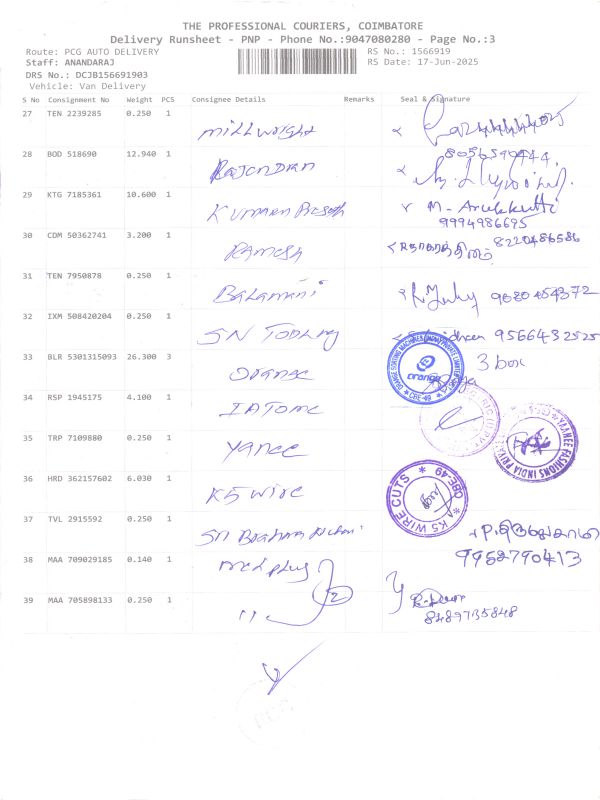 THE PROFESSIONAL COURIERS, COIMBATORE
Delivery Runsheet - PNP - Phone No.:9047080280 - Page No.:3
Route: PCG AUTO DELIVERY
RS No.: 1566919
Staff: ANANDARAJ
RS Date: 17-Jun-2025
DRS No.: DCJB156691903
Vehicle: Van Delivery
S No Consignment No Weight PCS Consignee Details Remarks Seal & Signature
27 TEN 2239285 0.250 1 Millwright
28 BOD 518690 12.940 1 Rajendran
29 KTG 7185361 10.600 1 M. Arukkutti
9994986695
30 COM 50362741 3.200 1 Ramesh 8220486586
31 TEN 7950878 0.250 1 Balamani
32 IXM 508420204 0.250 1 SN Tooling 9566432525
33 BLR 5301315093 26.300 3 Orange 3 box
34 RSP 1945175 4.100 1
35 TRP 7109880 0.250 1 Yanee
YAANEE FASHIONS INDIA PRIVATE
36 HRD 362157602 6.030 1 K5 Wire
K5 WIRE CUTS * CBE-49 *
37 TVL 2915592 0.250 1
9952790413
38 MAA 709029185 0.140 1 Medplus 2
39 MAA 705898133 0.250 1 "
8489735848